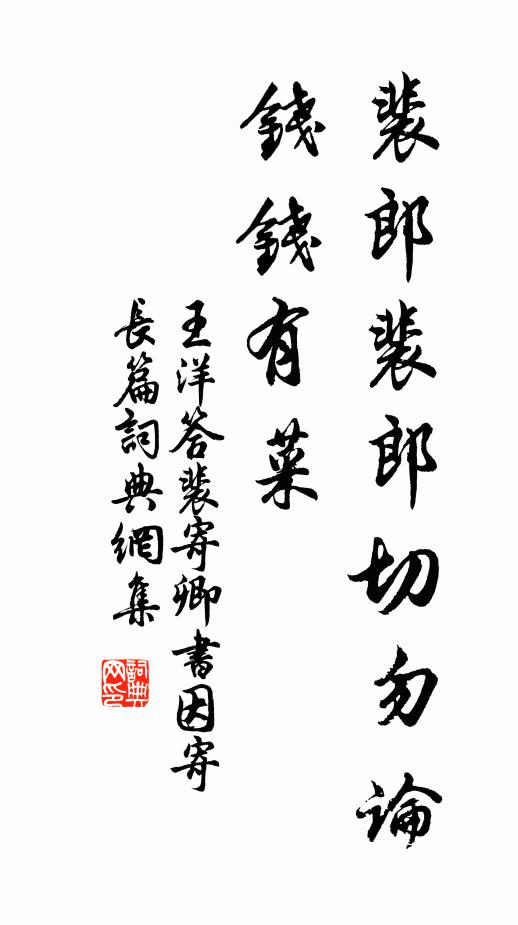 裴郎裴郎切勿論
錢錢有菜
王洋答裴寄卿書因寄
長篇詞典網集
詞典
网印